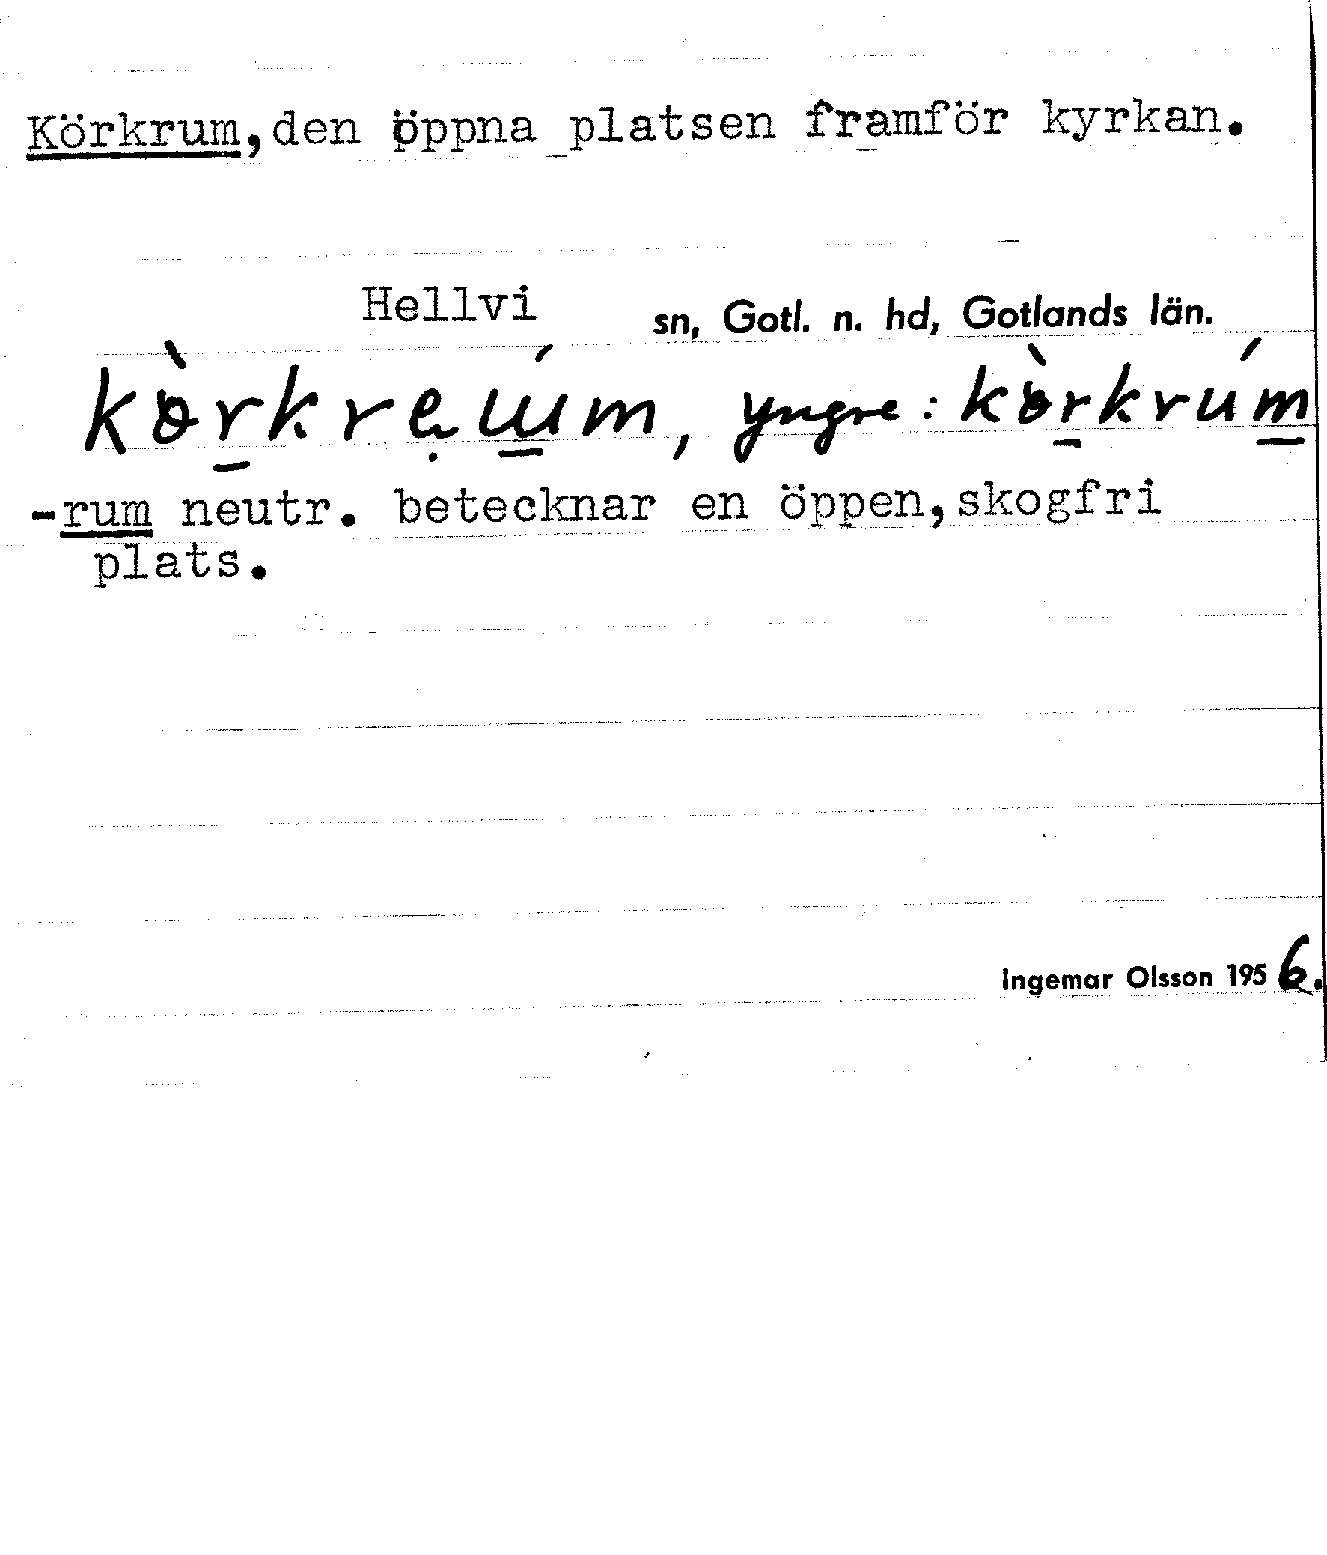 Körkrum, den öppna platsen framför kyrkan.
Hellvi sn, Gotl. n. hd, Gotlands län.
yngre:
-rum neutr. betecknar en öppen, skogfri
plats.
Ingemar Olsson 1956.